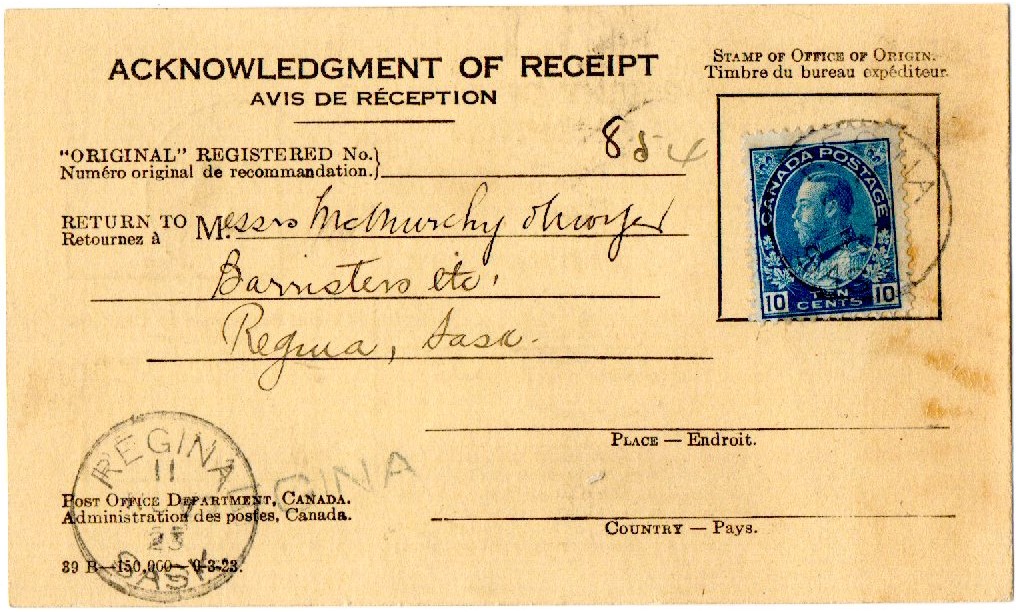 ACKNOWLEDGMENT OF RECEIPT
AVIS DE RÉCEPTION
STAMP OF OFFICE OF ORIGIN.
Timbre du bureau expéditeur.
"ORIGINAL" REGISTERED No.
Numéro original de recommandation.
854
CANADA POSTAGE
10 TEN CENTS 10
RETURN TO Messrs McMurchy
Retournez à
Barristers etc.
Regina, Sask.
PLACE — Endroit.
REGINA
11
23
SASK.
GINA
POST OFFICE DEPARTMENT, CANADA.
Administration des postes, Canada.
COUNTRY — Pays.
39 B—150,000—9-3-23.